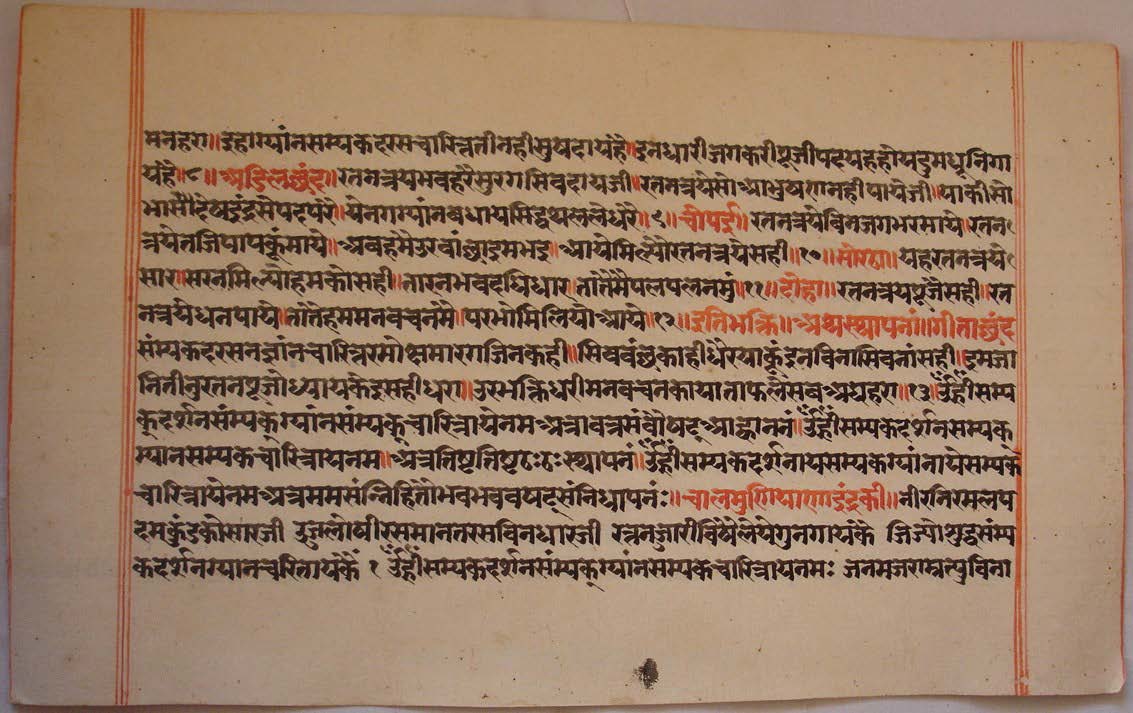 मनहरा॥इहाग्यांनसम्यकदरसचारित्रतीनहीसुषदायहै॥इनधारीजगकरीपूजीपदयहहोयइमधूनिगा
यहै॥८॥अडिलछंद॥रतनत्रयभवहरैसुरगसिवदायजी॥रतनत्रयसोआभ्रषणनहीपायेजी॥याकीसो
भासौदेषइंद्रसेपदपरै॥येनगग्यांनबधायसिद्धथलले धरै॥९॥चौपई॥रतनत्रयेविनजगभरमाये॥रतन
त्रयेतजिपापकूंमाये॥अबहमैउरवांछाइमभइ॥आयेमिल्यौरतनत्रयेसही॥१०॥सोरठा॥यहरतनत्रये
सार॥सरनमिल्योहमकोसही॥तारनभवदधिधार॥तातैमैपलपलनमुं॥११॥दोहा॥रतनत्रयपूजैसही॥रत
नत्रयेधनपाये॥तातेहममनवचनमै॥परभोमिलियोआये॥१२॥इतिभक्ति॥अथस्थापनां॥गीताछंद
संम्यकदरसनज्ञांनचारित्रमोक्षमारगजिनकही॥सिववंछकाहीधरैयाकूंइनविनासिवनांसही॥इमजा
नितीनुरतनपूजोध्यायकेइसहीधरा॥उरभक्तिधरीमनवचनकायाताफलैसबअघहरा॥१३॥ॐह्रींसम्य
क्दर्शनसंम्यक्ग्यांनसंम्यक्चारित्रायेनमअत्रावत्रसंवौषट्आह्वाननं॥ॐह्रींसम्यकदर्शनसम्यक
ग्यानसम्यकचारित्रायनम॥अत्रतिष्टतिष्टठःठःस्थापनं॥ॐह्रींसम्यकदर्शनायसम्यकग्यांनायेसम्यक
चारित्रायेनमअत्रममसंन्निहितोभवभववषट्संनिधापनंः॥चालमुणियाणाइंद्रकी॥नीरनिरमलप
दमकुंडकोसारजी उजलोषीरसमानतरसविनधारजी रत्ननजारीविषैलेयेगुनगायकै जिज्यौशुद्धसंम्य
कदर्शनग्यानचरितायकैं १ ॐह्रींसम्यकदर्शनसंम्यक्ग्यांनसम्यकचारित्रायनमः जनमजरामृत्युविना